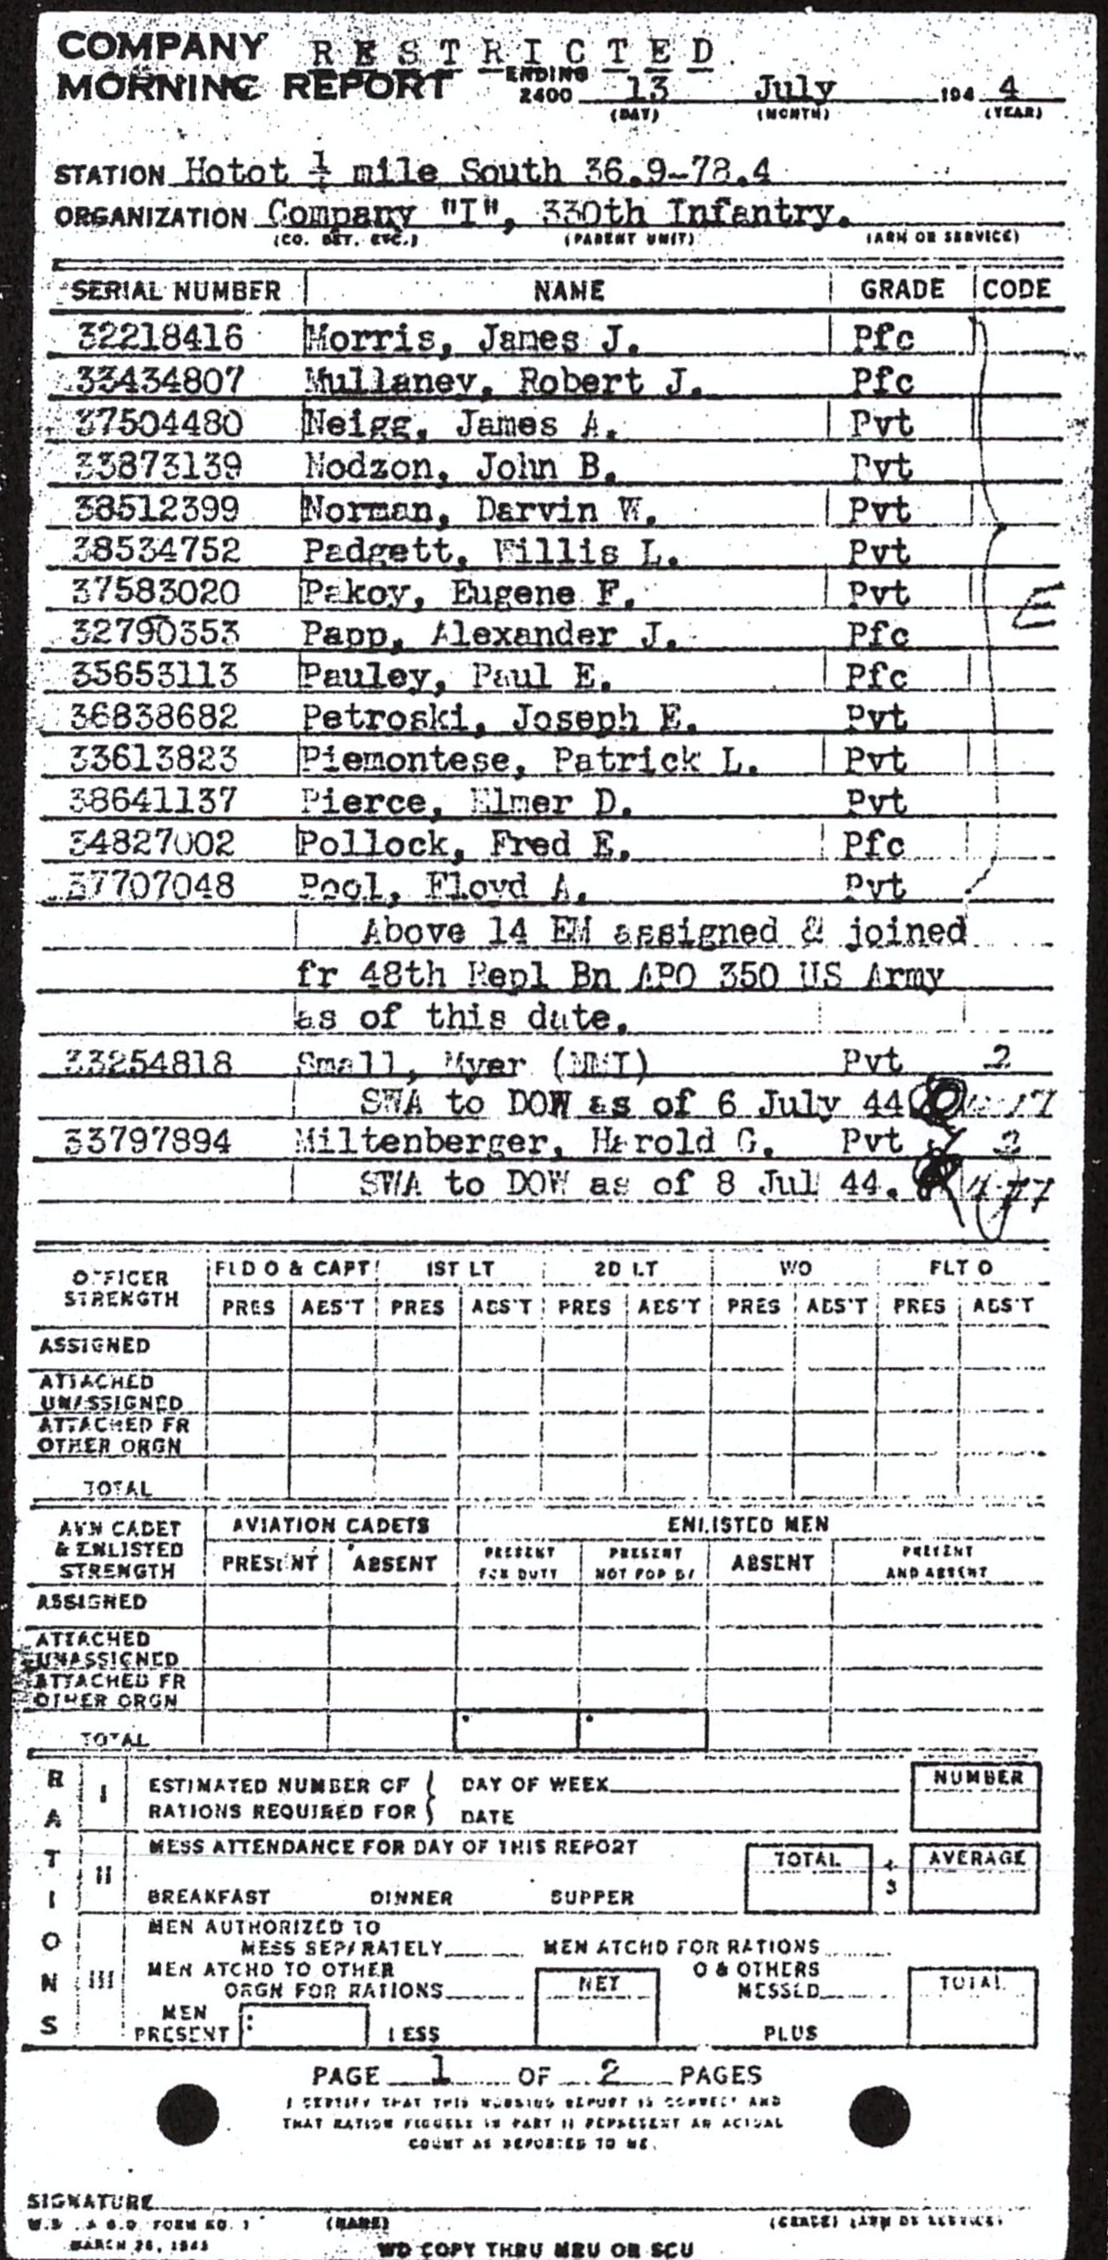 COMPANY RESTRICTED
MORNING REPORT ENDING 2400 13 July 194 4
(DAY) (MONTH) (YEAR)
STATION Hotot 1/4 mile South 36.9-78.4
ORGANIZATION Company "I", 330th Infantry.
(CO. DET. ETC.) (PARENT UNIT) (ARM OR SERVICE)
SERIAL NUMBER NAME GRADE CODE
32218416 Morris, James J. Pfc
33434807 Mullaney, Robert J. Pfc
37504480 Neigg, James A. Pvt
33873139 Nodzon, John B. Pvt
38512399 Norman, Darvin W. Pvt
38534752 Padgett, Willis L. Pvt
37583020 Pakoy, Eugene F. Pvt E
32790353 Papp, Alexander J. Pfc
35653113 Pauley, Paul E. Pfc
36838682 Petroski, Joseph E. Pvt
33613823 Piemontese, Patrick L. Pvt
38641137 Pierce, Elmer D. Pvt
34827002 Pollock, Fred E. Pfc
37707048 Pool, Floyd A. Pvt
Above 14 EM assigned & joined
fr 48th Repl Bn APO 350 US Army
as of this date.
33254818 Small, Myer (NMI) Pvt 2
SWA to DOW as of 6 July 44
33797894 Miltenberger, Harold G. Pvt 2
SWA to DOW as of 8 Jul 44.
OFFICER STRENGTH FLD O & CAPT 1ST LT 2D LT WO FLT O
PRES ABS'T PRES ABS'T PRES ABS'T PRES ABS'T PRES ABS'T
ASSIGNED
ATTACHED
UNASSIGNED
ATTACHED FR
OTHER ORGN
TOTAL
AVN CADET & ENLISTED STRENGTH AVIATION CADETS ENLISTED MEN
PRESENT ABSENT PRESENT FOR DUTY PRESENT NOT FOR DY ABSENT PRESENT AND ABSENT
ASSIGNED
ATTACHED
UNASSIGNED
ATTACHED FR
OTHER ORGN
TOTAL
RATIONS
I ESTIMATED NUMBER OF DAY OF WEEK NUMBER
RATIONS REQUIRED FOR DATE
II MESS ATTENDANCE FOR DAY OF THIS REPORT TOTAL ÷ 3 AVERAGE
BREAKFAST DINNER SUPPER
III MEN AUTHORIZED TO
MESS SEPARATELY MEN ATCHD FOR RATIONS
MEN ATCHD TO OTHER O & OTHERS
ORGN FOR RATIONS NET MESSED TOTAL
MEN PRESENT LESS PLUS
PAGE 1 OF 2 PAGES
I CERTIFY THAT THIS MORNING REPORT IS CORRECT AND
THAT RATION FIGURES IN PART II REPRESENT AN ACTUAL
COUNT AS REPORTED TO ME.
SIGNATURE
W.D., A.G.O. FORM NO. 1 (NAME) (GRADE) (ARM OR SERVICE)
MARCH 26, 1943
WD COPY THRU MRU OR SCU